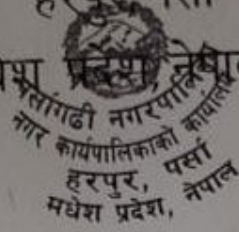 प्रदेश, नेपाल
पर्सागढी नगरपालिका
नगर कार्यपालिकाको कार्यालय
हरपुर, पर्सा
मधेश प्रदेश, नेपाल